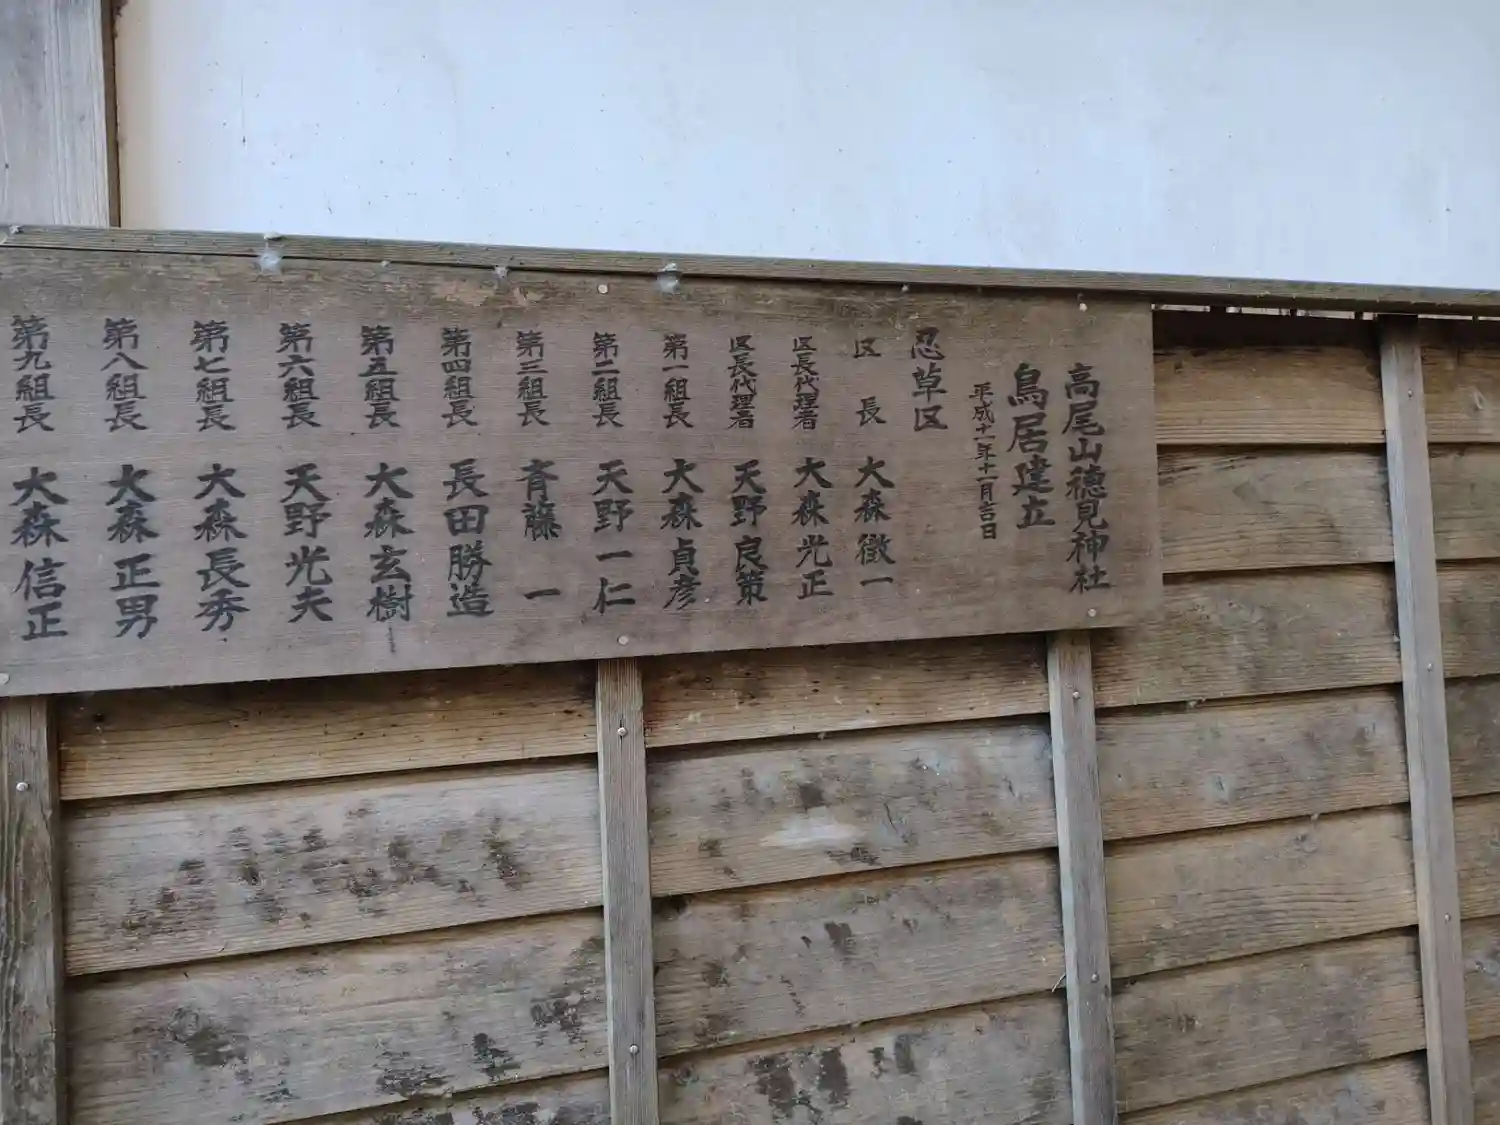 高尾山穂見神社
鳥居建立
平成十一年十一月吉日
忍草区
区長 大森徹一
区長代理者 大森光正
区長代理者 天野良策
第一組長 大森貞彦
第二組長 天野一仁
第三組長 斉藤一
第四組長 長田勝造
第五組長 大森玄樹
第六組長 天野光夫
第七組長 大森長秀
第八組長 大森正男
第九組長 大森信正